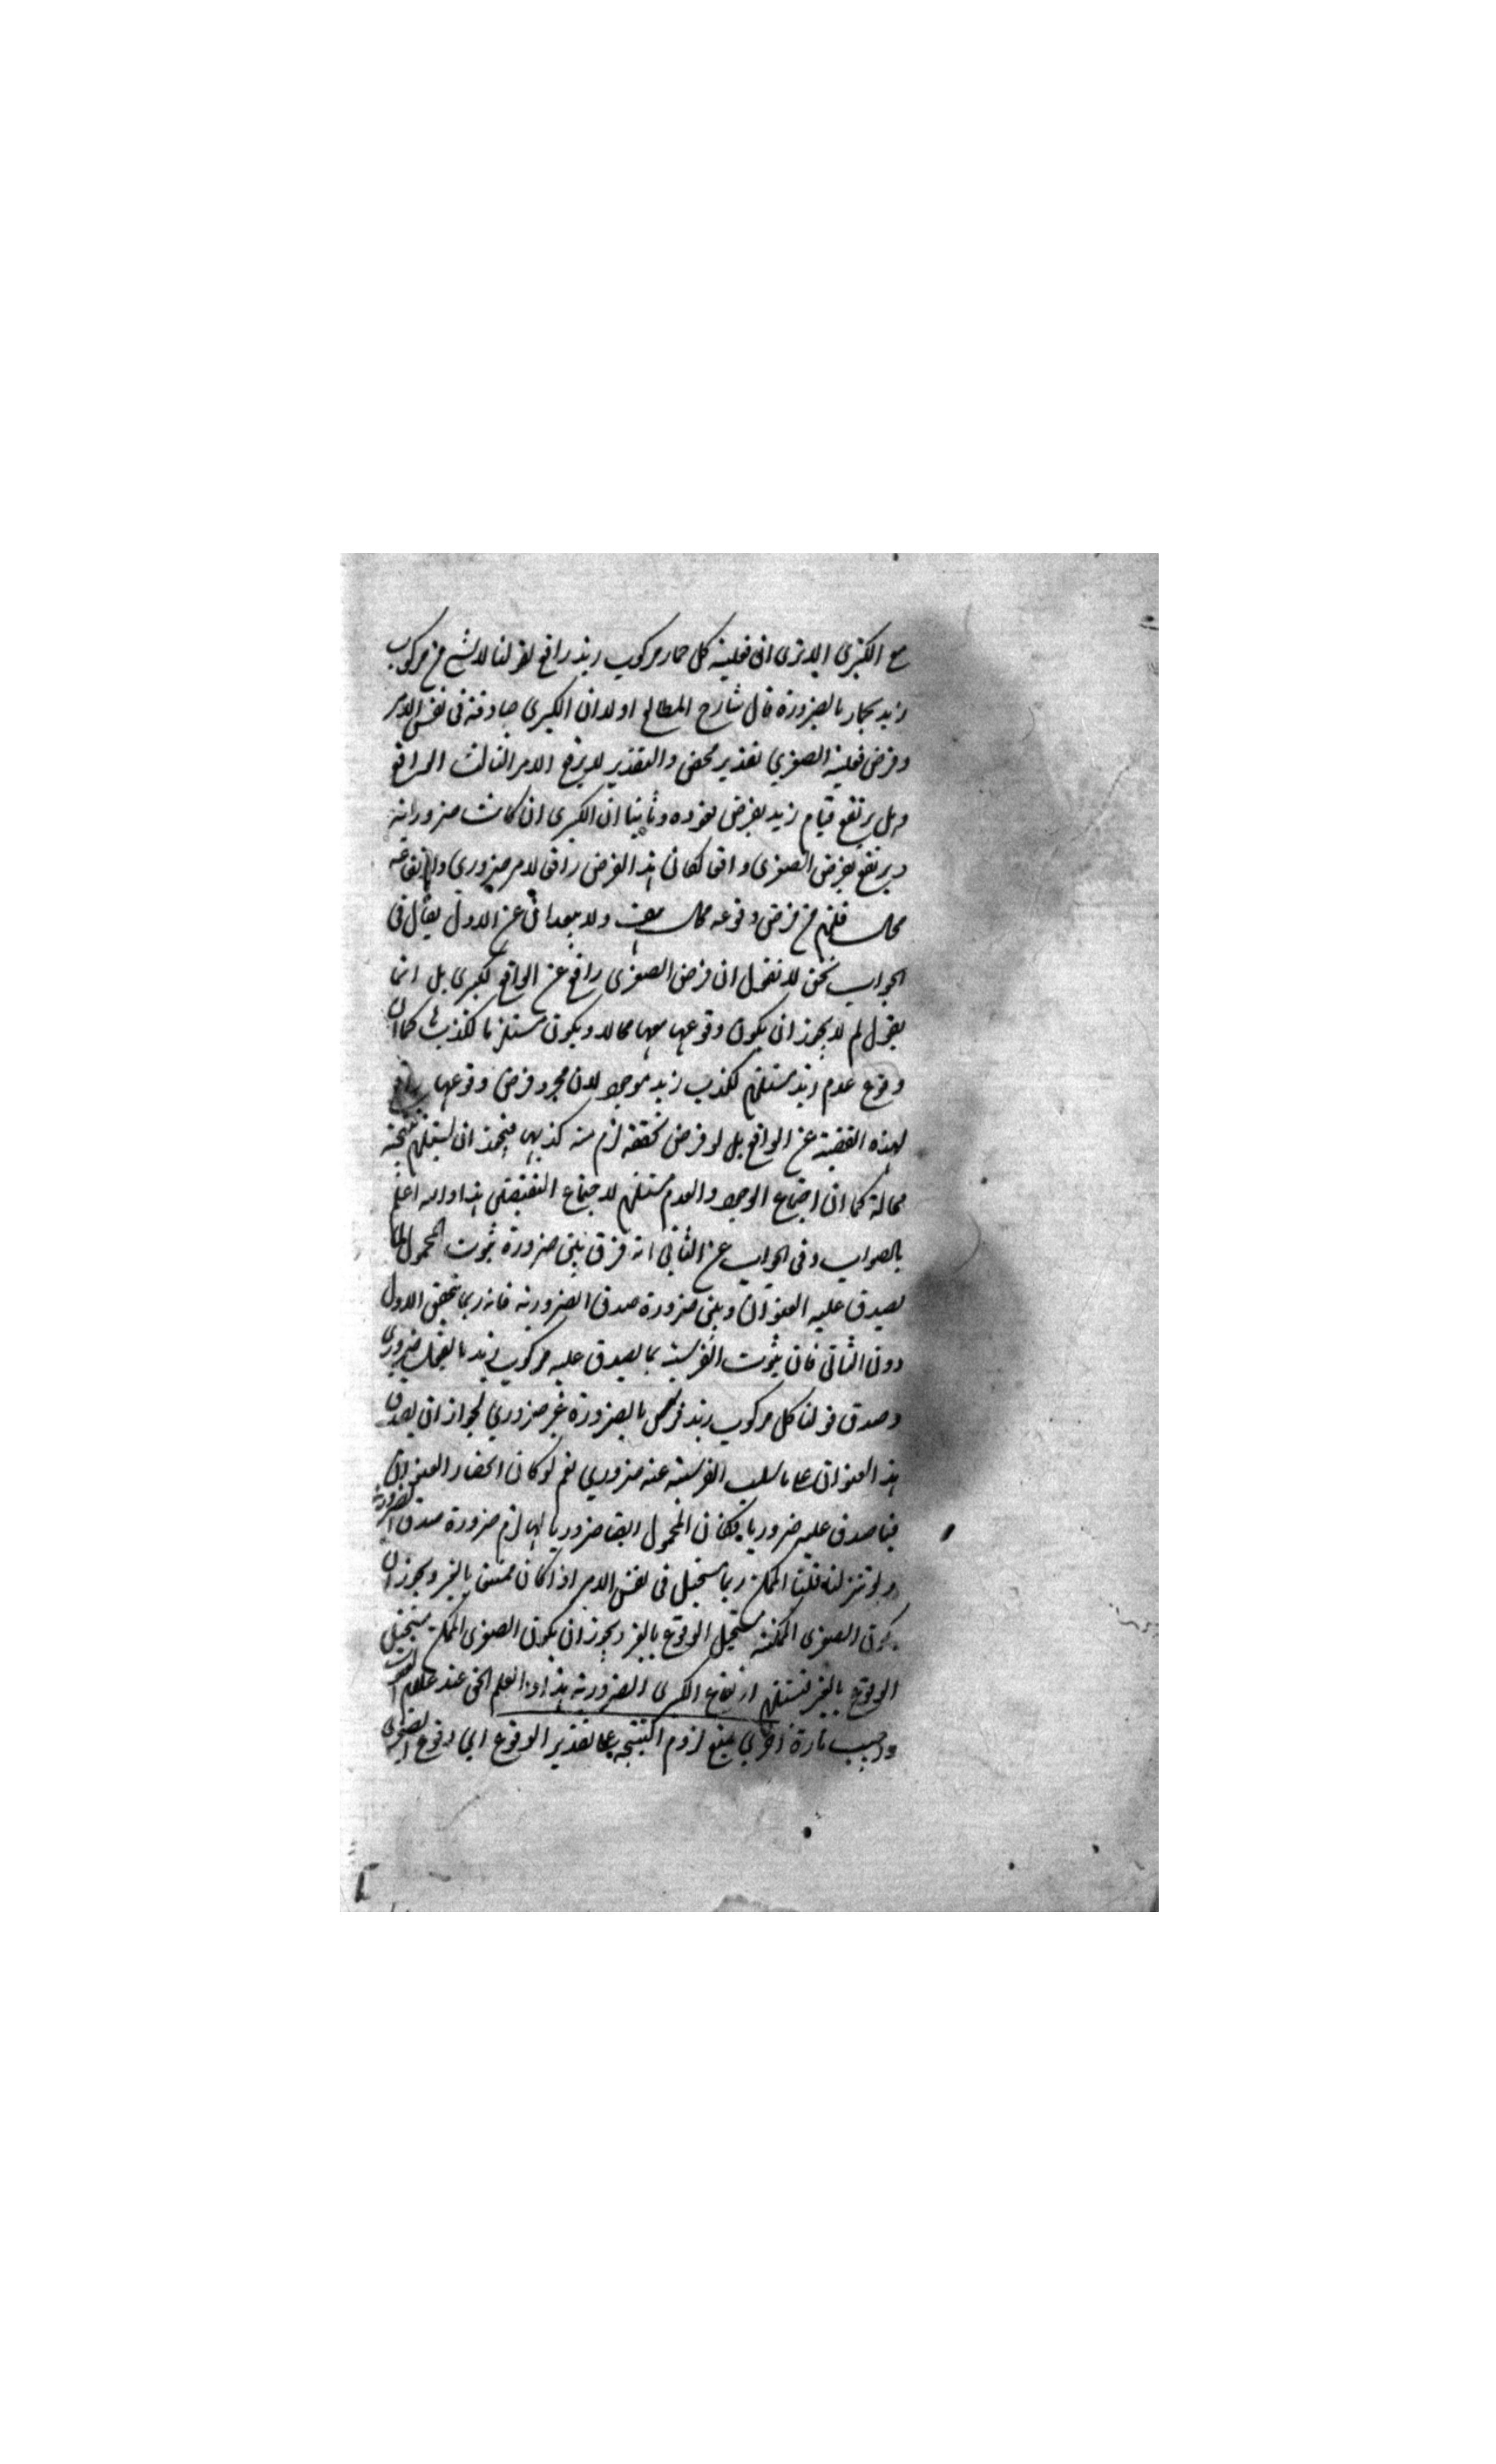 مع الكبرى الا ترى ان فعلية كل حمار مركوب زيد رافع لقولنا لا شئ من مركوب
زيد بحمار بالضرورة قال شارح المطالع اولا ان الكبرى صادقة فى نفس الامر
وفرض فعلية الصغرى تقدير محض والتقدير لا يرفع الامر الثابت الواقع
وهل يرتفع قيام زيد بفرض قعوده وثانيا ان الكبرى ان كانت ضرورية
ويرتفع بفرض الصغرى واقعا لكان هذا الفرض رافعا لامر ضرورى وارتفاعه
محال فلزم من فرض وقوعه محال ولا يبعد ان عن الاول يقال فى
الجواب نحن لا نقول ان فرض الصغرى رافع عن الواقع لكبرى بل انما
نقول لم لا يجوز ان يكون وقوعها معها محالا ويكون مستلزما لكذبها كما ان
وقوع عدم زيد مستلزم لكذب زيد موجود لا ان مجرد فرض وقوعها رافع
لهذه القضية عن الواقع بل لو فرض تحققه لزم منه كذبها فيجوز ان يستلزم نتيجة
محالة كما ان اجتماع الوجود والعدم مستلزم لاجتماع النقيضين هذا والله اعلم
بالصواب وفى الجواب عن الثانى انه فرق بين ضرورة ثبوت المحمول لما
يصدق عليه العنوان وبين ضرورة صدق الضرورية فانه ربما يتحقق الاول
دون الثانى فان ثبوت الفرسية بما يصدق عليه مركوب زيد بالفعل ضرورى
وصدق قولنا كل مركوب زيد فرس بالضرورة غير ضروري لجواز ان يصدق
هذا العنوان على ما سلب الفرسية عنه ضروري نعم لو كان انحصار العنوان
فيما صدق عليه ضروريا فكان المحمول ايضا ضروريا لها لزم ضرورة صدق الضرورية
ولو تنزلنا قلنا الممكن ربما يستحيل فى نفس الامر اذا كان ممتنعا بالغير ويجوز ان
يكون الصغرى الممكنة مستحيل الوقوع بالغير ويجوز ان يكون الصغرى الممكن مستحيل
الوقوع بالغير فتستلزم ارتفاع الكبرى الضرورية هذا العلم الحق عند علام الغيوب
واجيب تارة اخرى بمنع لزوم النتيجة على تقدير الوقوع اي وقوع الصغرى